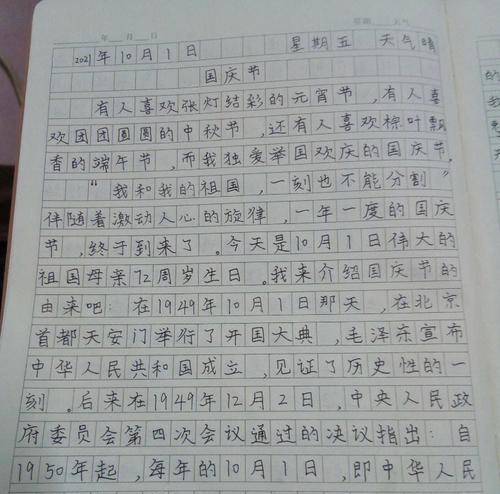 年 月 日 星期 天气
2021年10月1日 星期五 天气晴
国庆节
有人喜欢张灯结彩的元宵节,有人喜
欢团团圆圆的中秋节,还有人喜欢棕叶飘
香的端午节,而我独爱举国欢庆的国庆节,
“我和我的祖国,一刻也不能分割”
伴随着激动人心的旋律,一年一度的国庆
节,终于到来了。今天是10月1日伟大的
祖国母亲72周岁生日。我来介绍国庆节的
由来吧:在1949年10月1日那天,在北京
首都天安门举行了开国大典,毛泽东宣布
中华人民共和国成立,见证了历史性的一
刻。后来在1949年12月2日,中央人民政
府委员会第四次会议通过的决议指出:自
1950年起,每年的10月1日,即中华人民